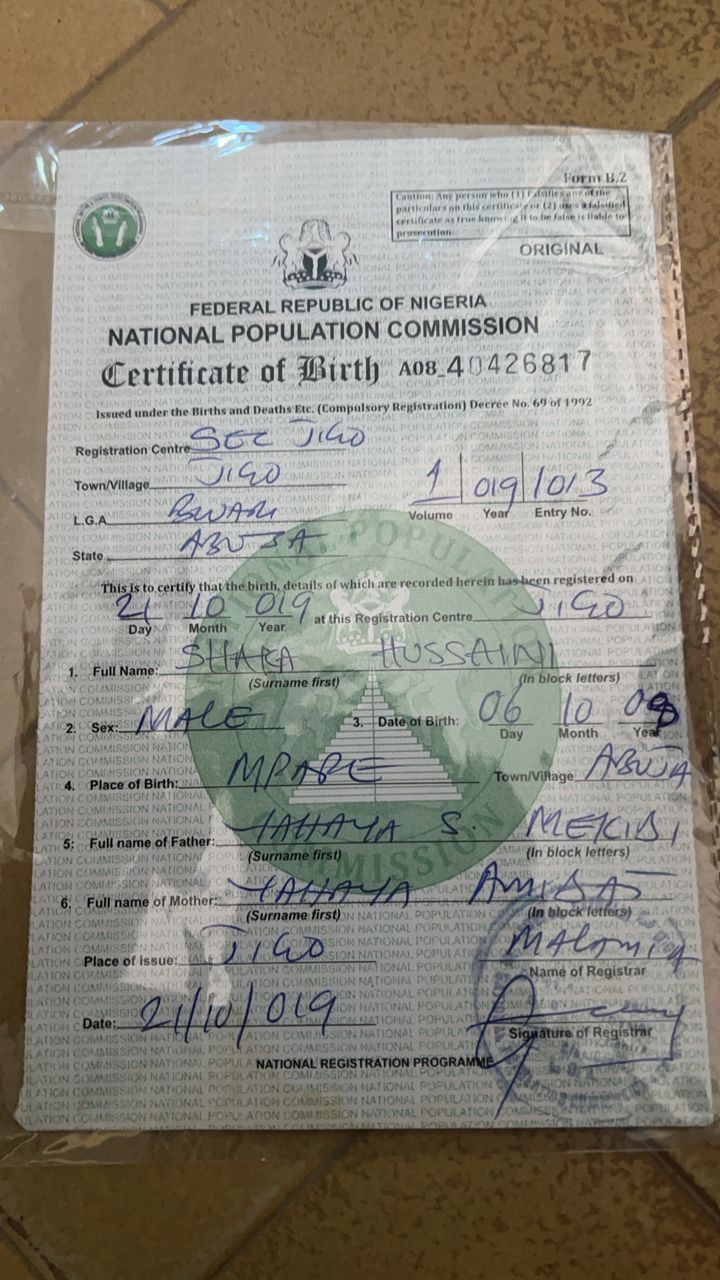 Form B.2
Caution: Any person who (1) Falsifies any of the
particulars on this certificate or (2) uses a falsified
certificate as true knowing it to be false is liable to
prosecution
ORIGINAL
FEDERAL REPUBLIC OF NIGERIA
NATIONAL POPULATION COMMISSION
Certificate of Birth A08_40426817
Issued under the Births and Deaths Etc. (Compulsory Registration) Decree No. 69 of 1992
Registration Centre SEC JIGO
Town/Village JIGO
1 019 1013
L.G.A BWARI
Volume Year Entry No.
State ABUJA
This is to certify that the birth, details of which are recorded herein has been registered on
21 10 019 at this Registration Centre JIGO
Day Month Year
1. Full Name: SHAKA HUSSAINI
(Surname first) (In block letters)
2. Sex: MALE 3. Date of Birth: 06 10 008
Day Month Year
4. Place of Birth: MPAPE Town/Village ABUJA
5: Full name of Father: YAHAYA S. MEKIDI
(Surname first) (In block letters)
6. Full name of Mother: YAHAYA
(Surname first) (In block letters)
Place of Issue: JIGO
Name of Registrar
Date: 21/10/019
Signature of Registrar
NATIONAL REGISTRATION PROGRAMME